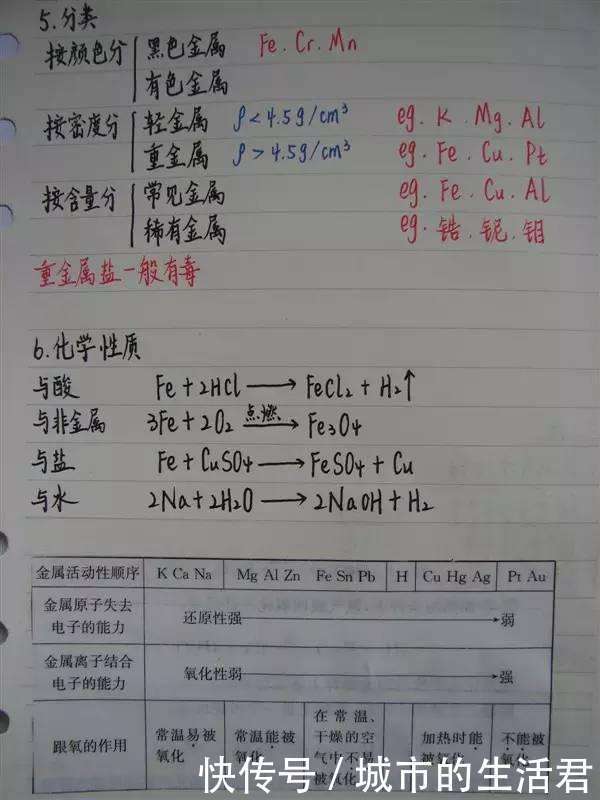 5.分类
按颜色分 黑色金属 Fe.Cr.Mn
有色金属
按密度分 轻金属 ρ<4.5g/cm³ eg. K. Mg. Al
重金属 ρ>4.5g/cm³ eg. Fe. Cu. Pt
按含量分 常见金属 eg. Fe. Cu. Al
稀有金属 eg. 锆. 铌. 钼
重金属盐一般有毒
6.化学性质
与酸 Fe+2HCl→FeCl₂+H₂↑
与非金属 3Fe+2O₂ 点燃→ Fe₃O₄
与盐 Fe+CuSO₄→FeSO₄+Cu
与水 2Na+2H₂O→2NaOH+H₂
金属活动性顺序 K Ca Na Mg Al Zn Fe Sn Pb H Cu Hg Ag Pt Au
金属原子失去电子的能力 还原性强→弱
金属离子结合电子的能力 氧化性弱→强
跟氧的作用 常温易被氧化 常温能被氧化 在常温、干燥的空气中不易被氧化 加热时能被氧化 不能被氧化
快传号/城市的生活君